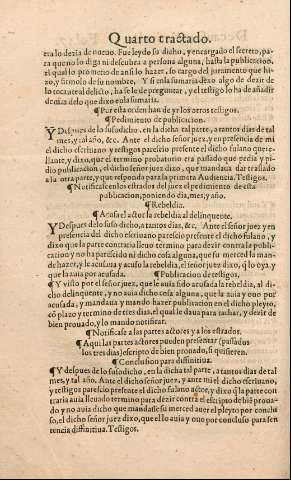 Quarto tractado.
era lo dezia de nueuo. Fue leydo su dicho, y encargado el secreto, pa-
ra que no lo diga ni descubra a persona alguna, hasta la publicacion,
el qual lo prometio de ansi lo hazer, so cargo del juramento que hi-
zo, y firmolo de su nombre, Y si en la sumaria dexo algo de dezir de
lo tocante al delicto, ha se le de preguntar, y el testigo lo ha de añadir
de mas delo que dixo en la sumaria.
¶ Por esta orden han de yr los otros testigos.
¶ Pedimiento de publicacion.
Y Despues de lo susodicho, en la dicha tal parte, a tantos dias de tal
mes, y tal año, &c. Ante el dicho señor juez, y en presencia de mi
el dicho escriuano y testigos parescio presente el dicho fulano quere-
llante, y dixo, que el termino probatorio era passado que pedia y pi-
dio publicacion, el dicho señor juez dixo, que mandaua dar traslado
a la otra parte, y que responda para la primera Audiencia. Testigos.
¶ Notificase en los estrados del juez el pedimiento de esta
publicacion, poniendo dia, mes, y año.
¶ Rebeldia.
¶ Acusa el actor la rebeldia al delinquente.
Y Despues de lo suso dicho, a tantos dias, &c. Ante el señor juez y en
presencia del dicho escriuano parescio presente el dicho fulano, y
dixo que la parte contraria lleuo termino para dezir contra la publica-
cion y no ha parescido ni dicho cosa alguna, que su merced la man-
de hazer, y le acusaua y acuso la rebeldia, el señor juez dixo, q̃ lo oya, y
que la auia por acusada. ¶ Publicacion de testigos.
¶ Y visto por el señor juez, que le auia sido acusada la rebeldia, al di-
cho delinquente, y no auia dicho cosa alguna, que la auia y ouo por
acusada, y mandaua y mando hazer publicacion en el dicho pleyto,
cõ plazo y termino de tres dias, el qual le daua para tachar, y dezir de
bien prouado, y lo mando notificar.
¶ Notificase a las partes actores y a los estrados.
¶ Aqui las partes actores pueden presentar (passados
los tres dias) escripto de bien prouado, si quisieren.
¶ Conclusion para diffinitiua.
¶ Y despues de lo susodicho, en la dicha tal parte, a tantos dias de tal
mes, y tal año. Ante el dicho señor juez, y ante mi el dicho escriuano,
y testigos parescio presente el dicho fulano actor, y dixo q̃ la parte con
traria auia lleuado termino para dezir contra el escripto de biẽ proua-
do y no auia dicho que mandasse su merced auer el pleyto por conclu
so, el dicho señor juez dixo, que el lo auia y ouo por concluso para sen
tencia diffinitiua. Testigos.